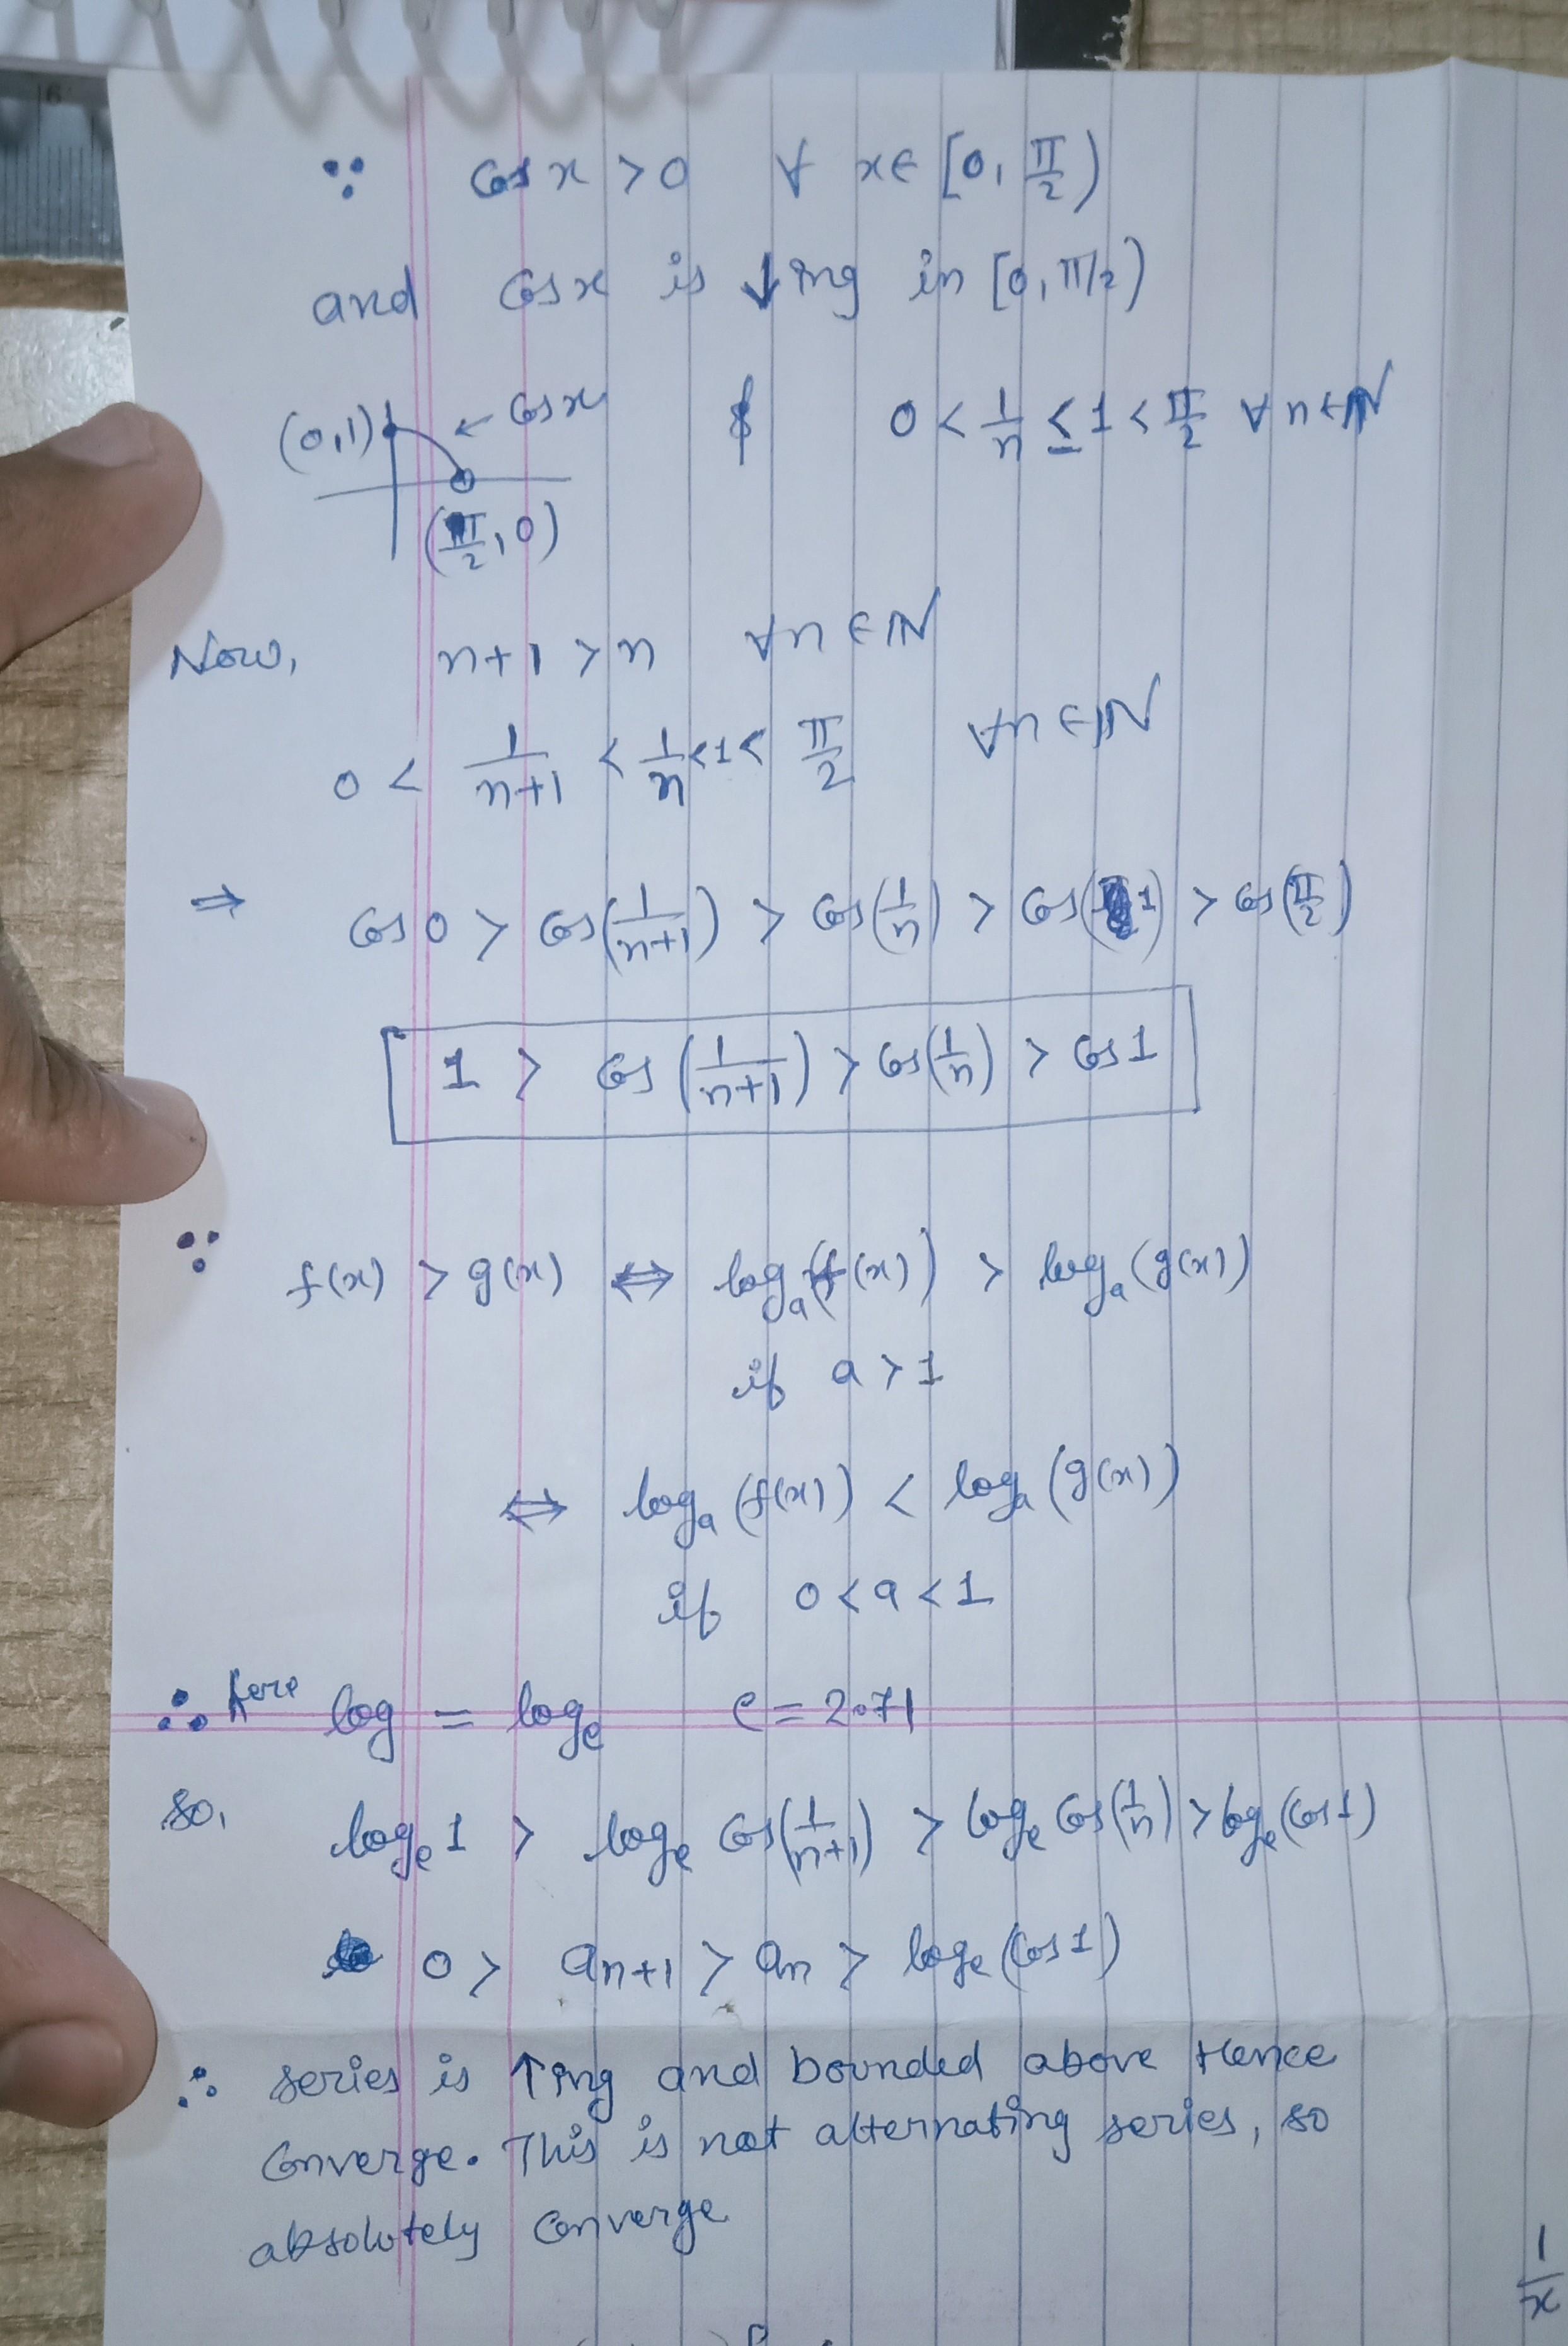 ∵ Cos x > 0 ∀ x ∈ [0, π/2)
and Cos x is ↓ing in [0, π/2)
(0,1) ← Cos x & 0 < 1/n ≤ 1 < π/2 ∀ n ∈ ℕ
(π/2, 0)
Now, n+1 > n ∀ n ∈ ℕ
0 < 1/(n+1) < 1/n < 1 < π/2 ∀ n ∈ ℕ
⇒ Cos 0 > Cos(1/(n+1)) > Cos(1/n) > Cos(1) > Cos(π/2)
1 > Cos(1/(n+1)) > Cos(1/n) > Cos 1
∵ f(x) > g(x) ⇔ logₐ(f(x)) > logₐ(g(x))
if a > 1
⇔ logₐ(f(x)) < logₐ(g(x))
if 0 < a < 1
∴ here log = logₑ e = 2.71
so, logₑ 1 > logₑ Cos(1/(n+1)) > logₑ Cos(1/n) > logₑ(Cos 1)
0 > aₙ₊₁ > aₙ > logₑ(Cos 1)
∴ series is ↑ing and bounded above Hence
Converge. This is not alternating series, so
absolutely Converge
1/x